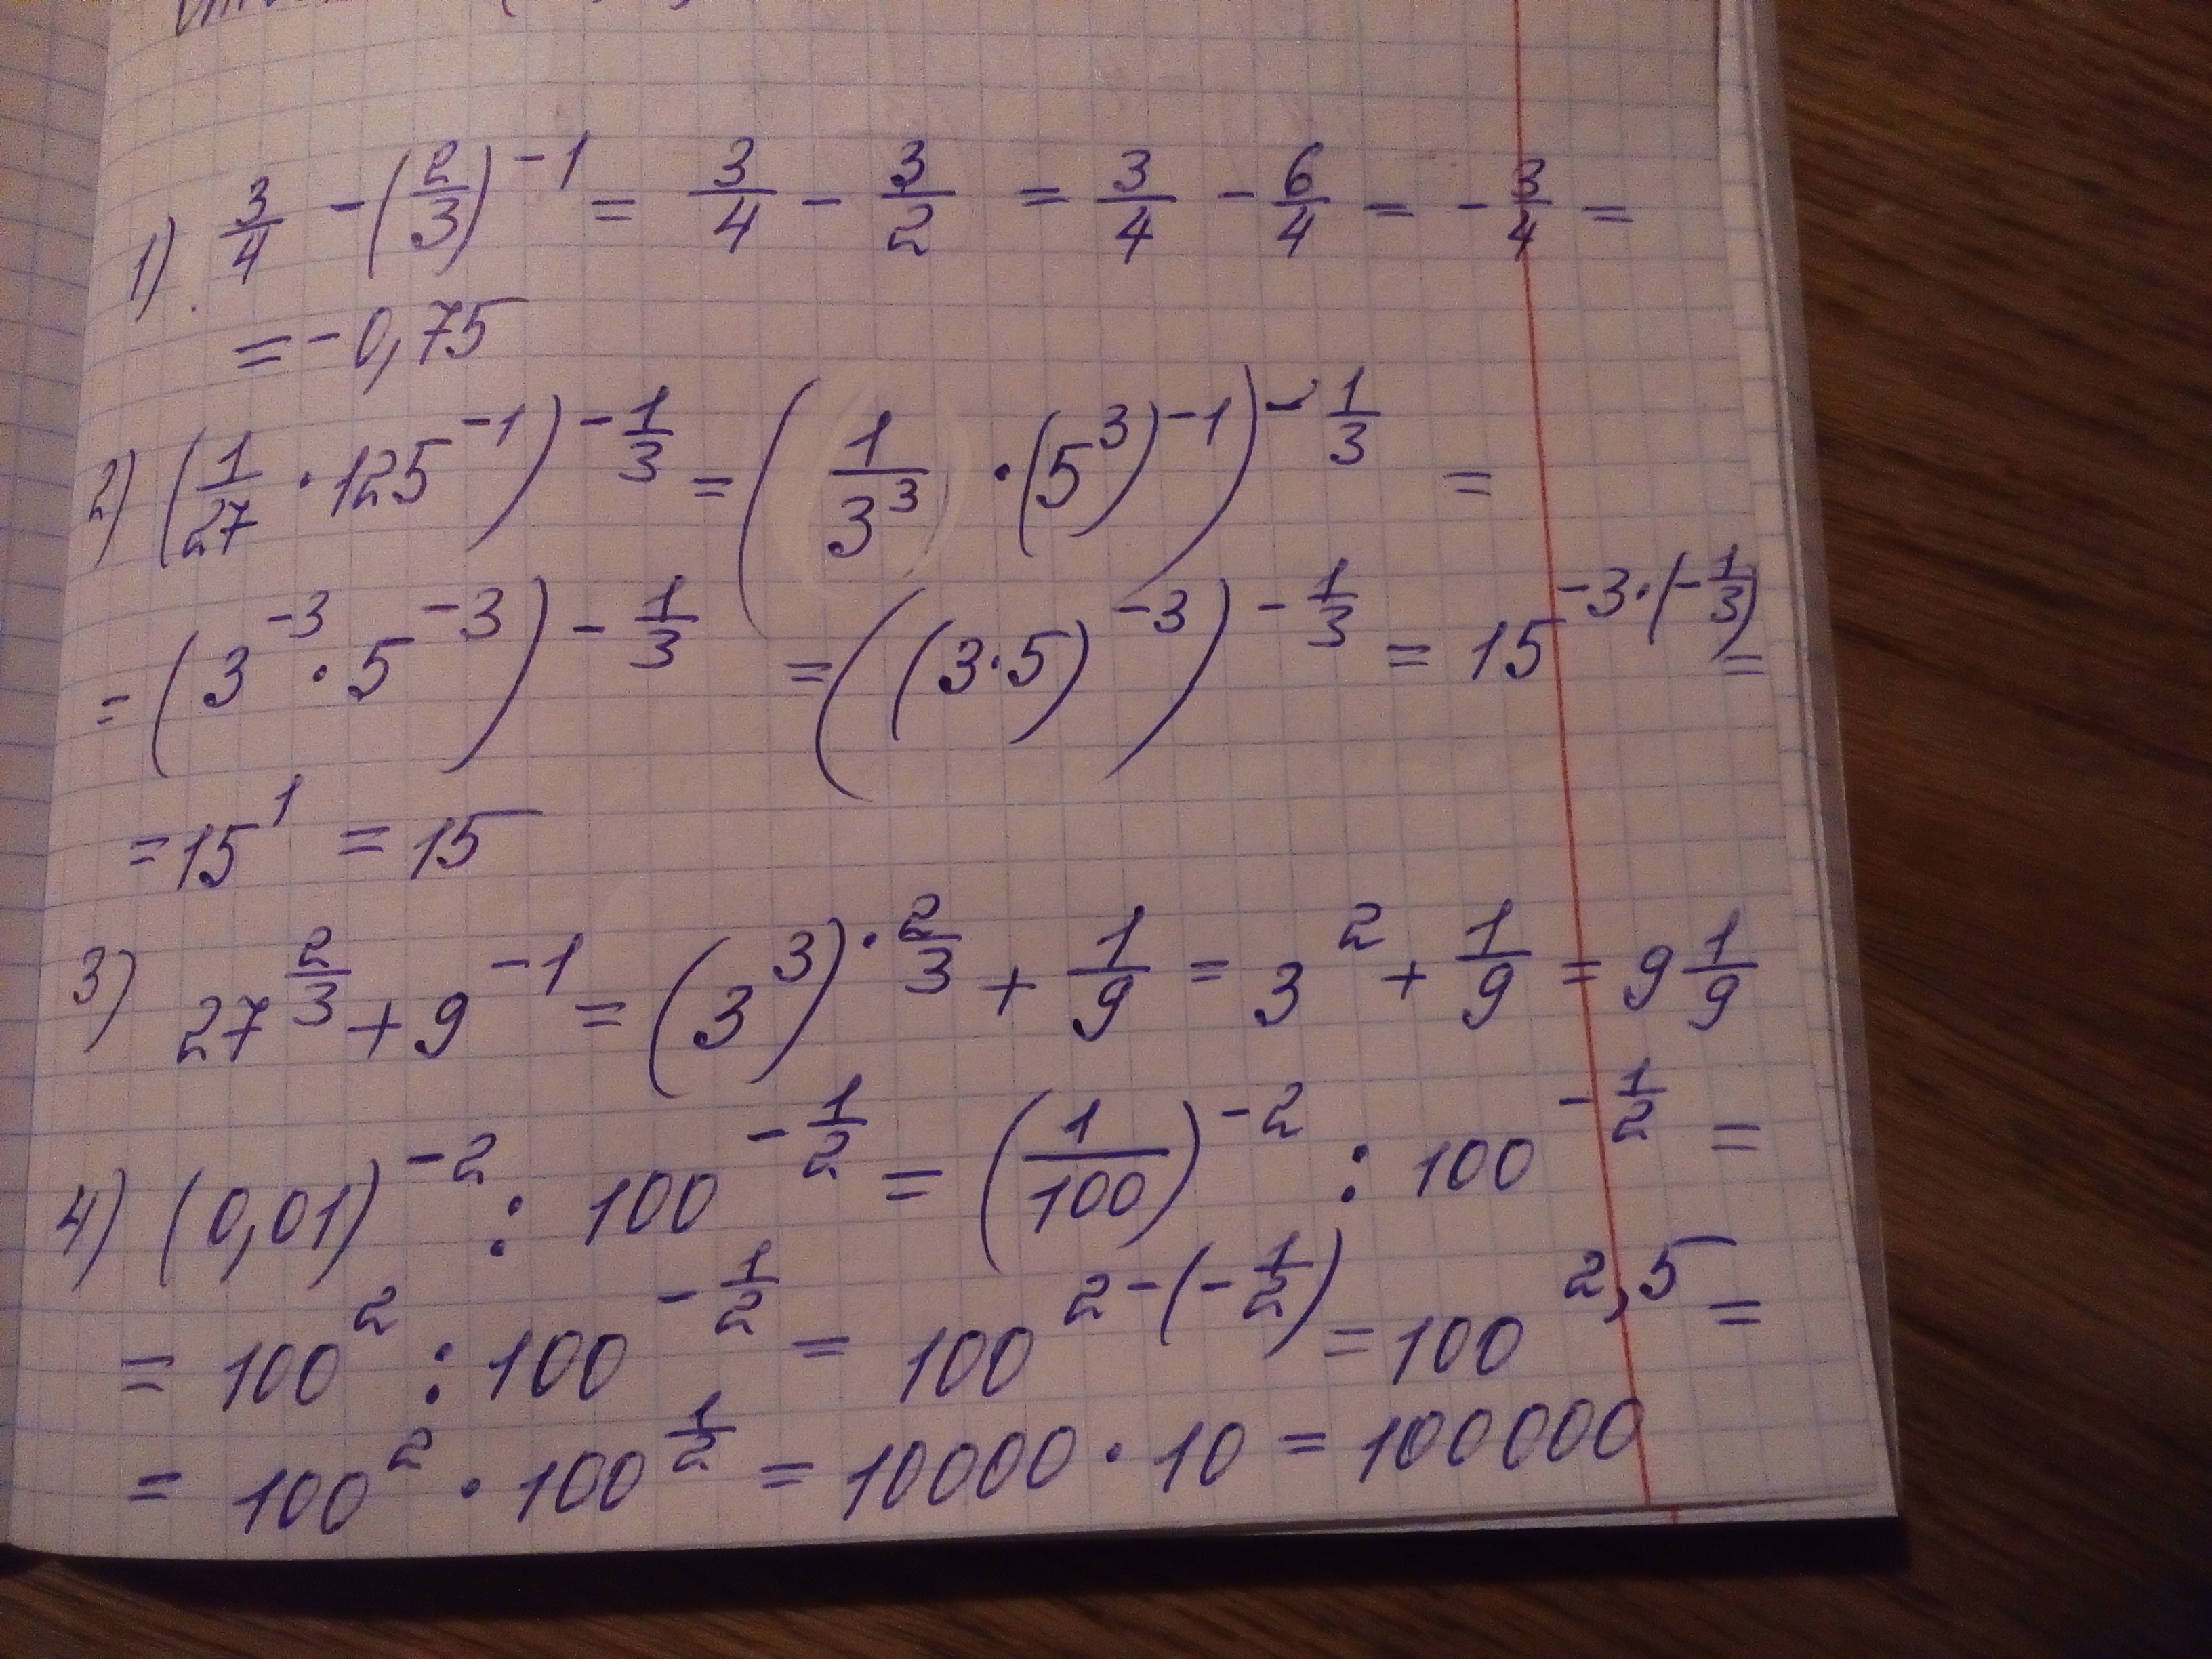 1) 3/4 - (2/3)^-1 = 3/4 - 3/2 = 3/4 - 6/4 = - 3/4 =
= - 0,75
2) (1/27 · 125^-1)^-1/3 = (1/3^3 · (5^3)^-1)^-1/3 =
= (3^-3 · 5^-3)^-1/3 = ((3·5)^-3)^-1/3 = 15^-3·(-1/3) =
= 15^1 = 15
3) 27^2/3 + 9^-1 = (3^3)^·2/3 + 1/9 = 3^2 + 1/9 = 9 1/9
4) (0,01)^-2 : 100^-1/2 = (1/100)^-2 : 100^-1/2 =
= 100^2 : 100^-1/2 = 100^2-(-1/2) = 100^2,5 =
= 100^2 · 100^1/2 = 10000 · 10 = 100000